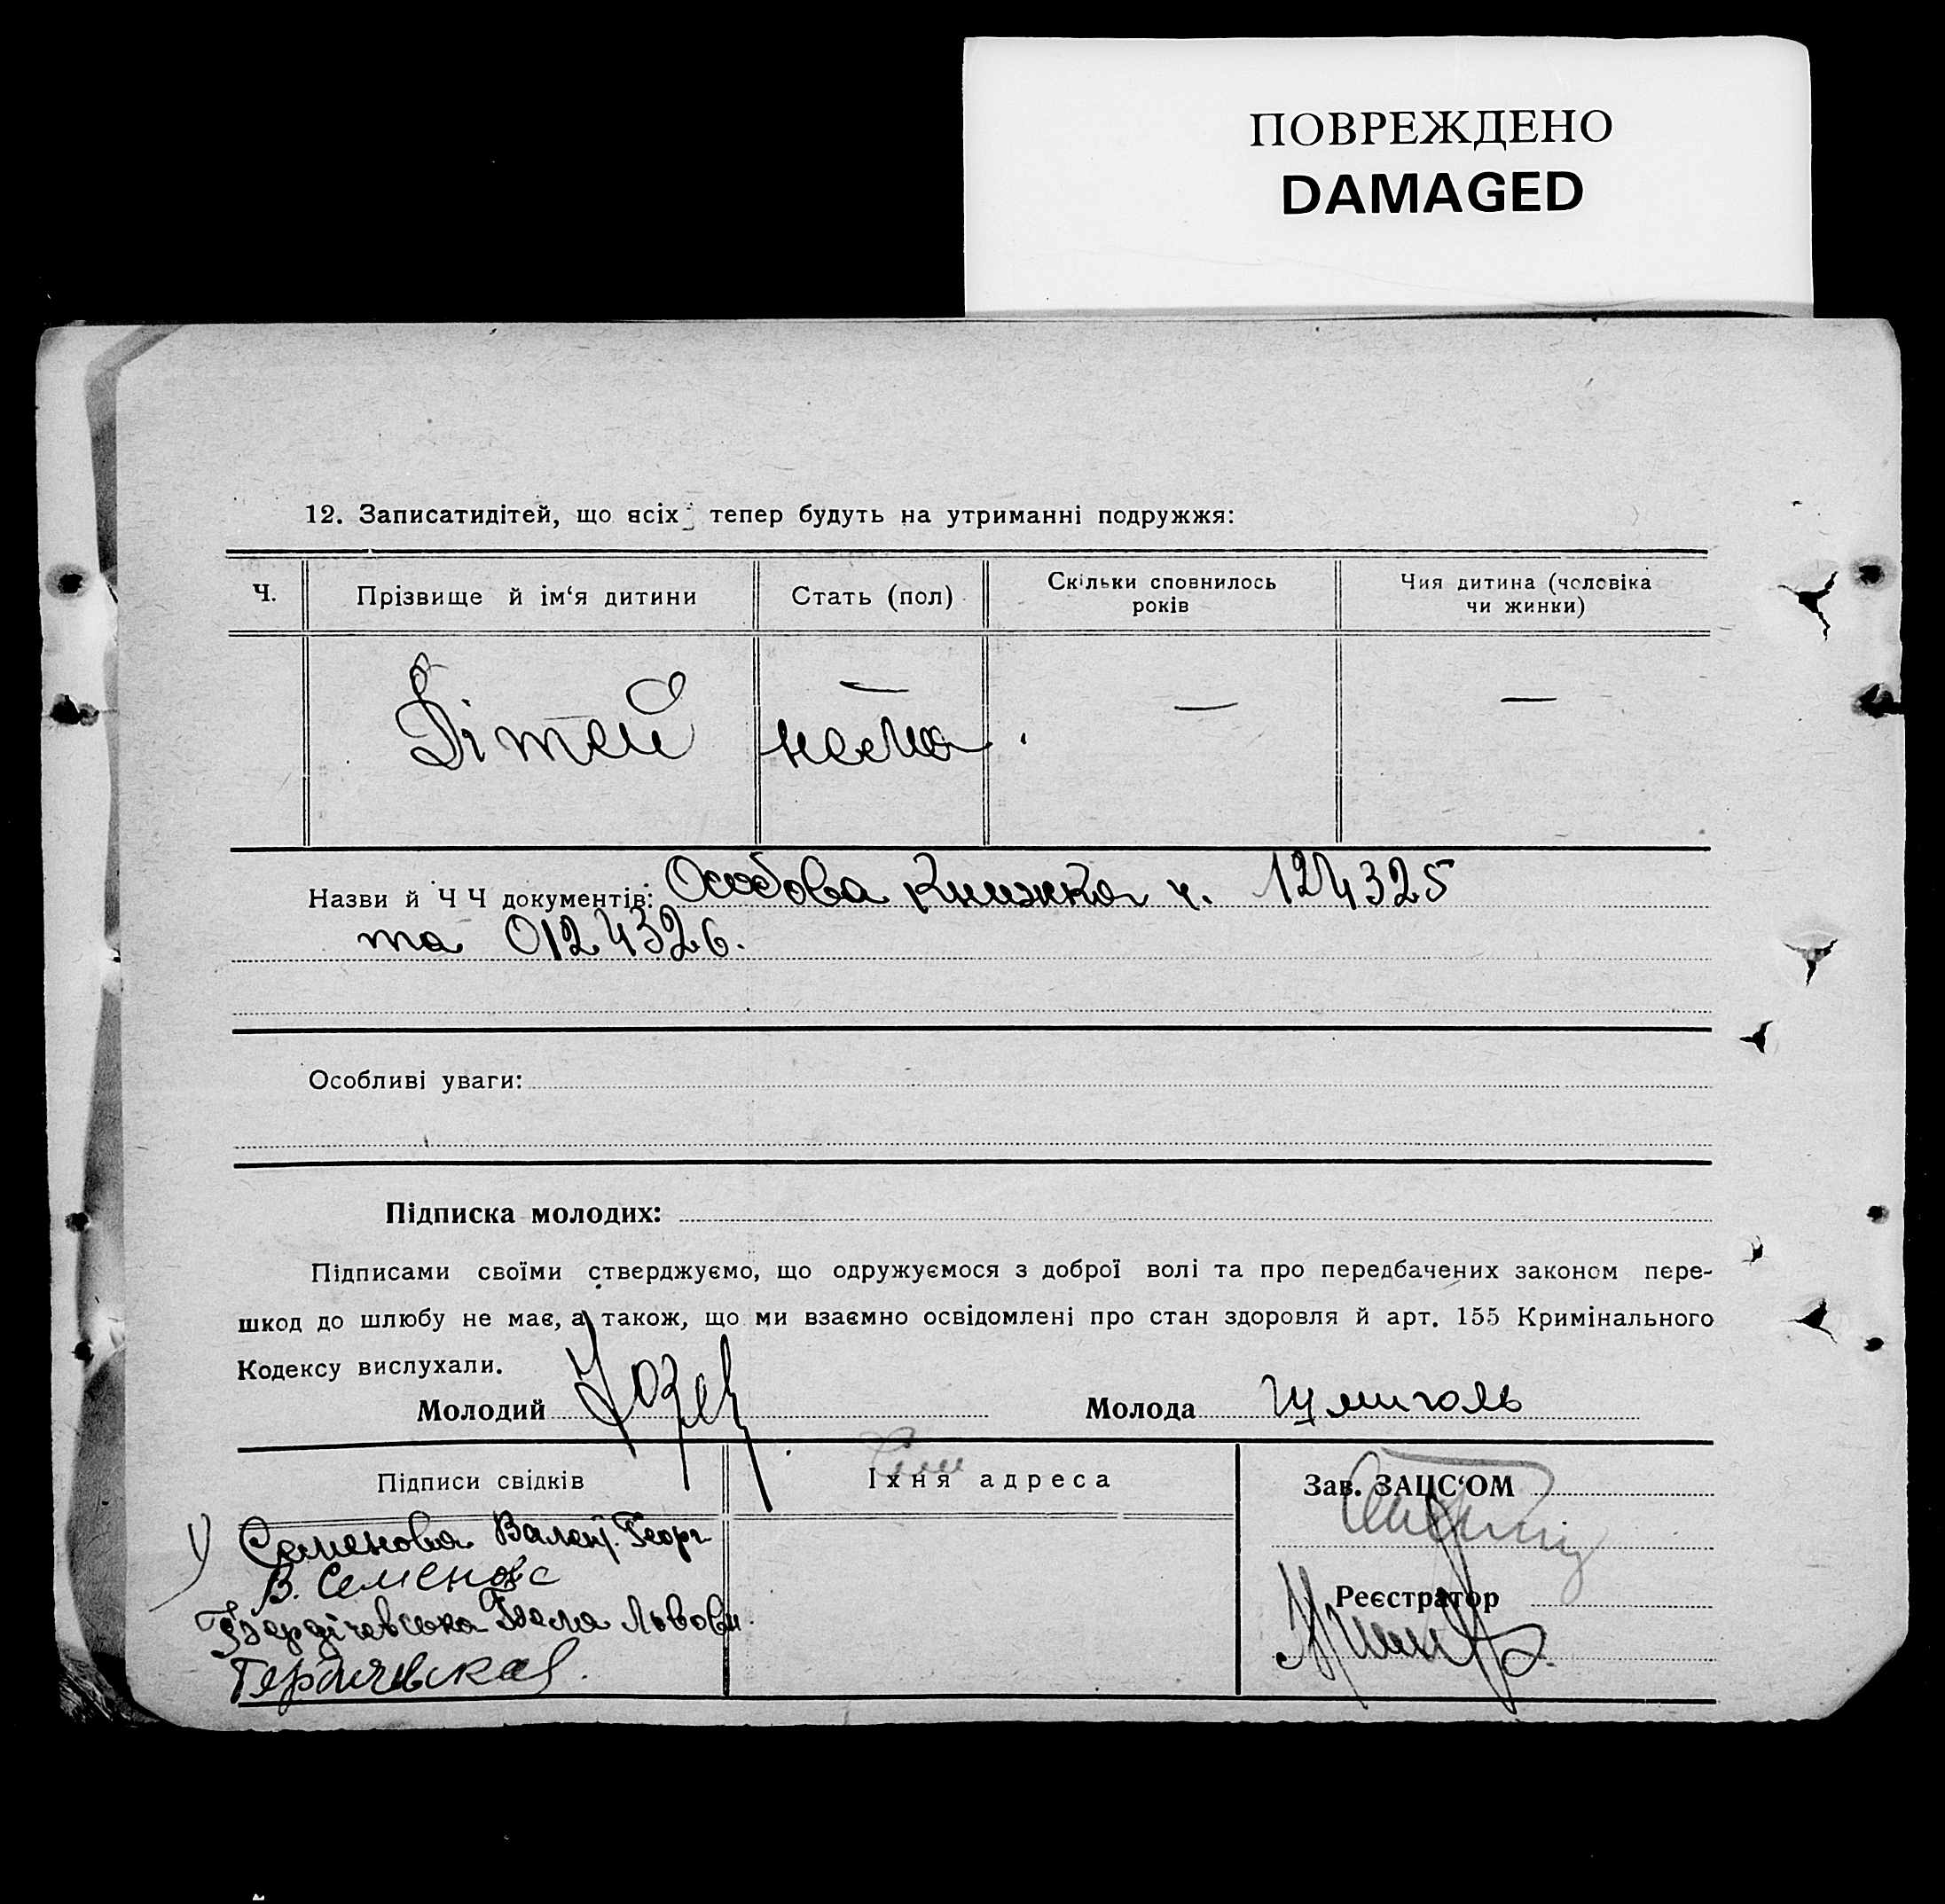 ПОВРЕЖДЕНО
DAMAGED
12. Записатидітей, що всіх тепер будуть на утриманні подружжя:
Ч.
Прізвище й ім‘я дитини
Стать (пол)
Скільки сповнилось
років
Чия дитина (чоловіка
чи жинки)
— — —
Дітей нема.
Назви й Ч Ч документів: Особова книжка ч. 124325
та 0124326.
Особливі уваги:
Підписка молодих:
Підписами своїми стверджуємо, що одружуємося з доброї волі та про передбачених законом пере-
шкод до шлюбу не має, а також, що ми взаємно освідомлені про стан здоровля й арт. 155 Кримінального
Кодексу вислухали.
Молодий
Молода Шмиголь
Підписи свідків
Їхня адреса
Зав. ЗАЦС‘ОМ
Семенова Валент. Георг
В. Семенова
Реєстратор
Львовн.